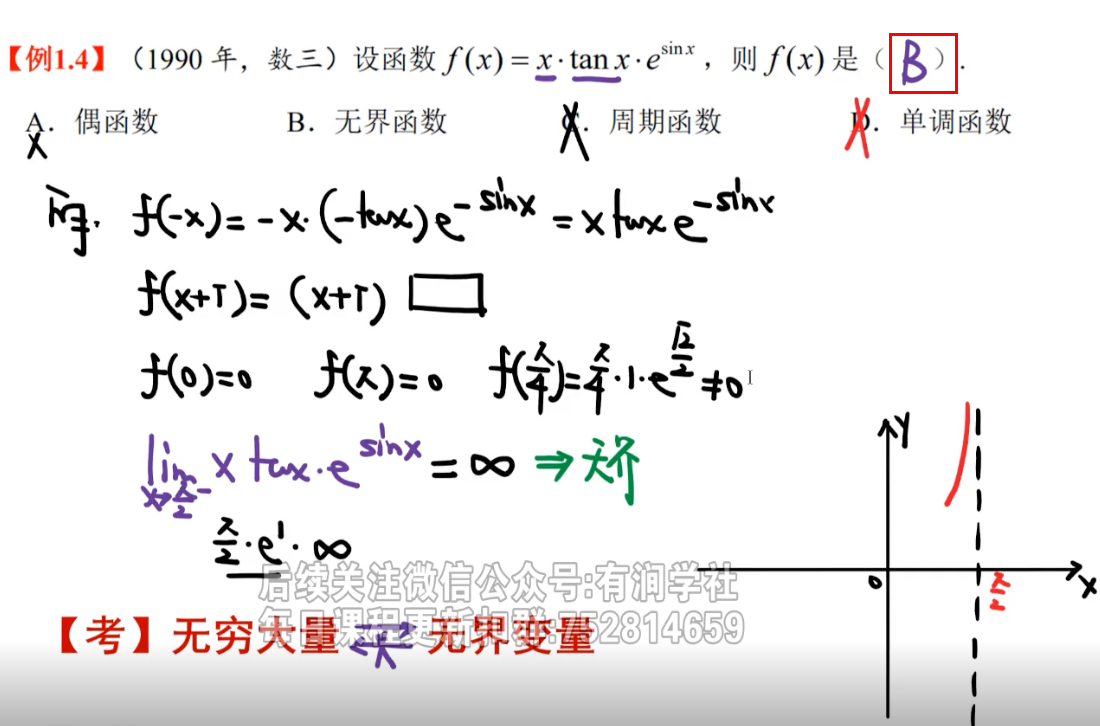 【例1.4】(1990 年，数三) 设函数 f(x) = x · tan x · e^{sin x}，则 f(x) 是（ B ）.
A. 偶函数 B. 无界函数 C. 周期函数 D. 单调函数
f(-x) = -x·(-tanx)e^{-sinx} = x tanx e^{-sinx}
f(x+T) = (x+T) □
f(0)=0 f(π)=0 f(π/4)=π/4·1·e^{√2/2}≠0
lim x→π/2⁻ x tanx·e^{sinx} = ∞ ⇒ 无界
π/2·e^1·∞
Y
0 π/2 X
后续关注微信公众号:有润学社
每日课程更新扣群:752814659
【考】无穷大量 ⇄ 无界变量